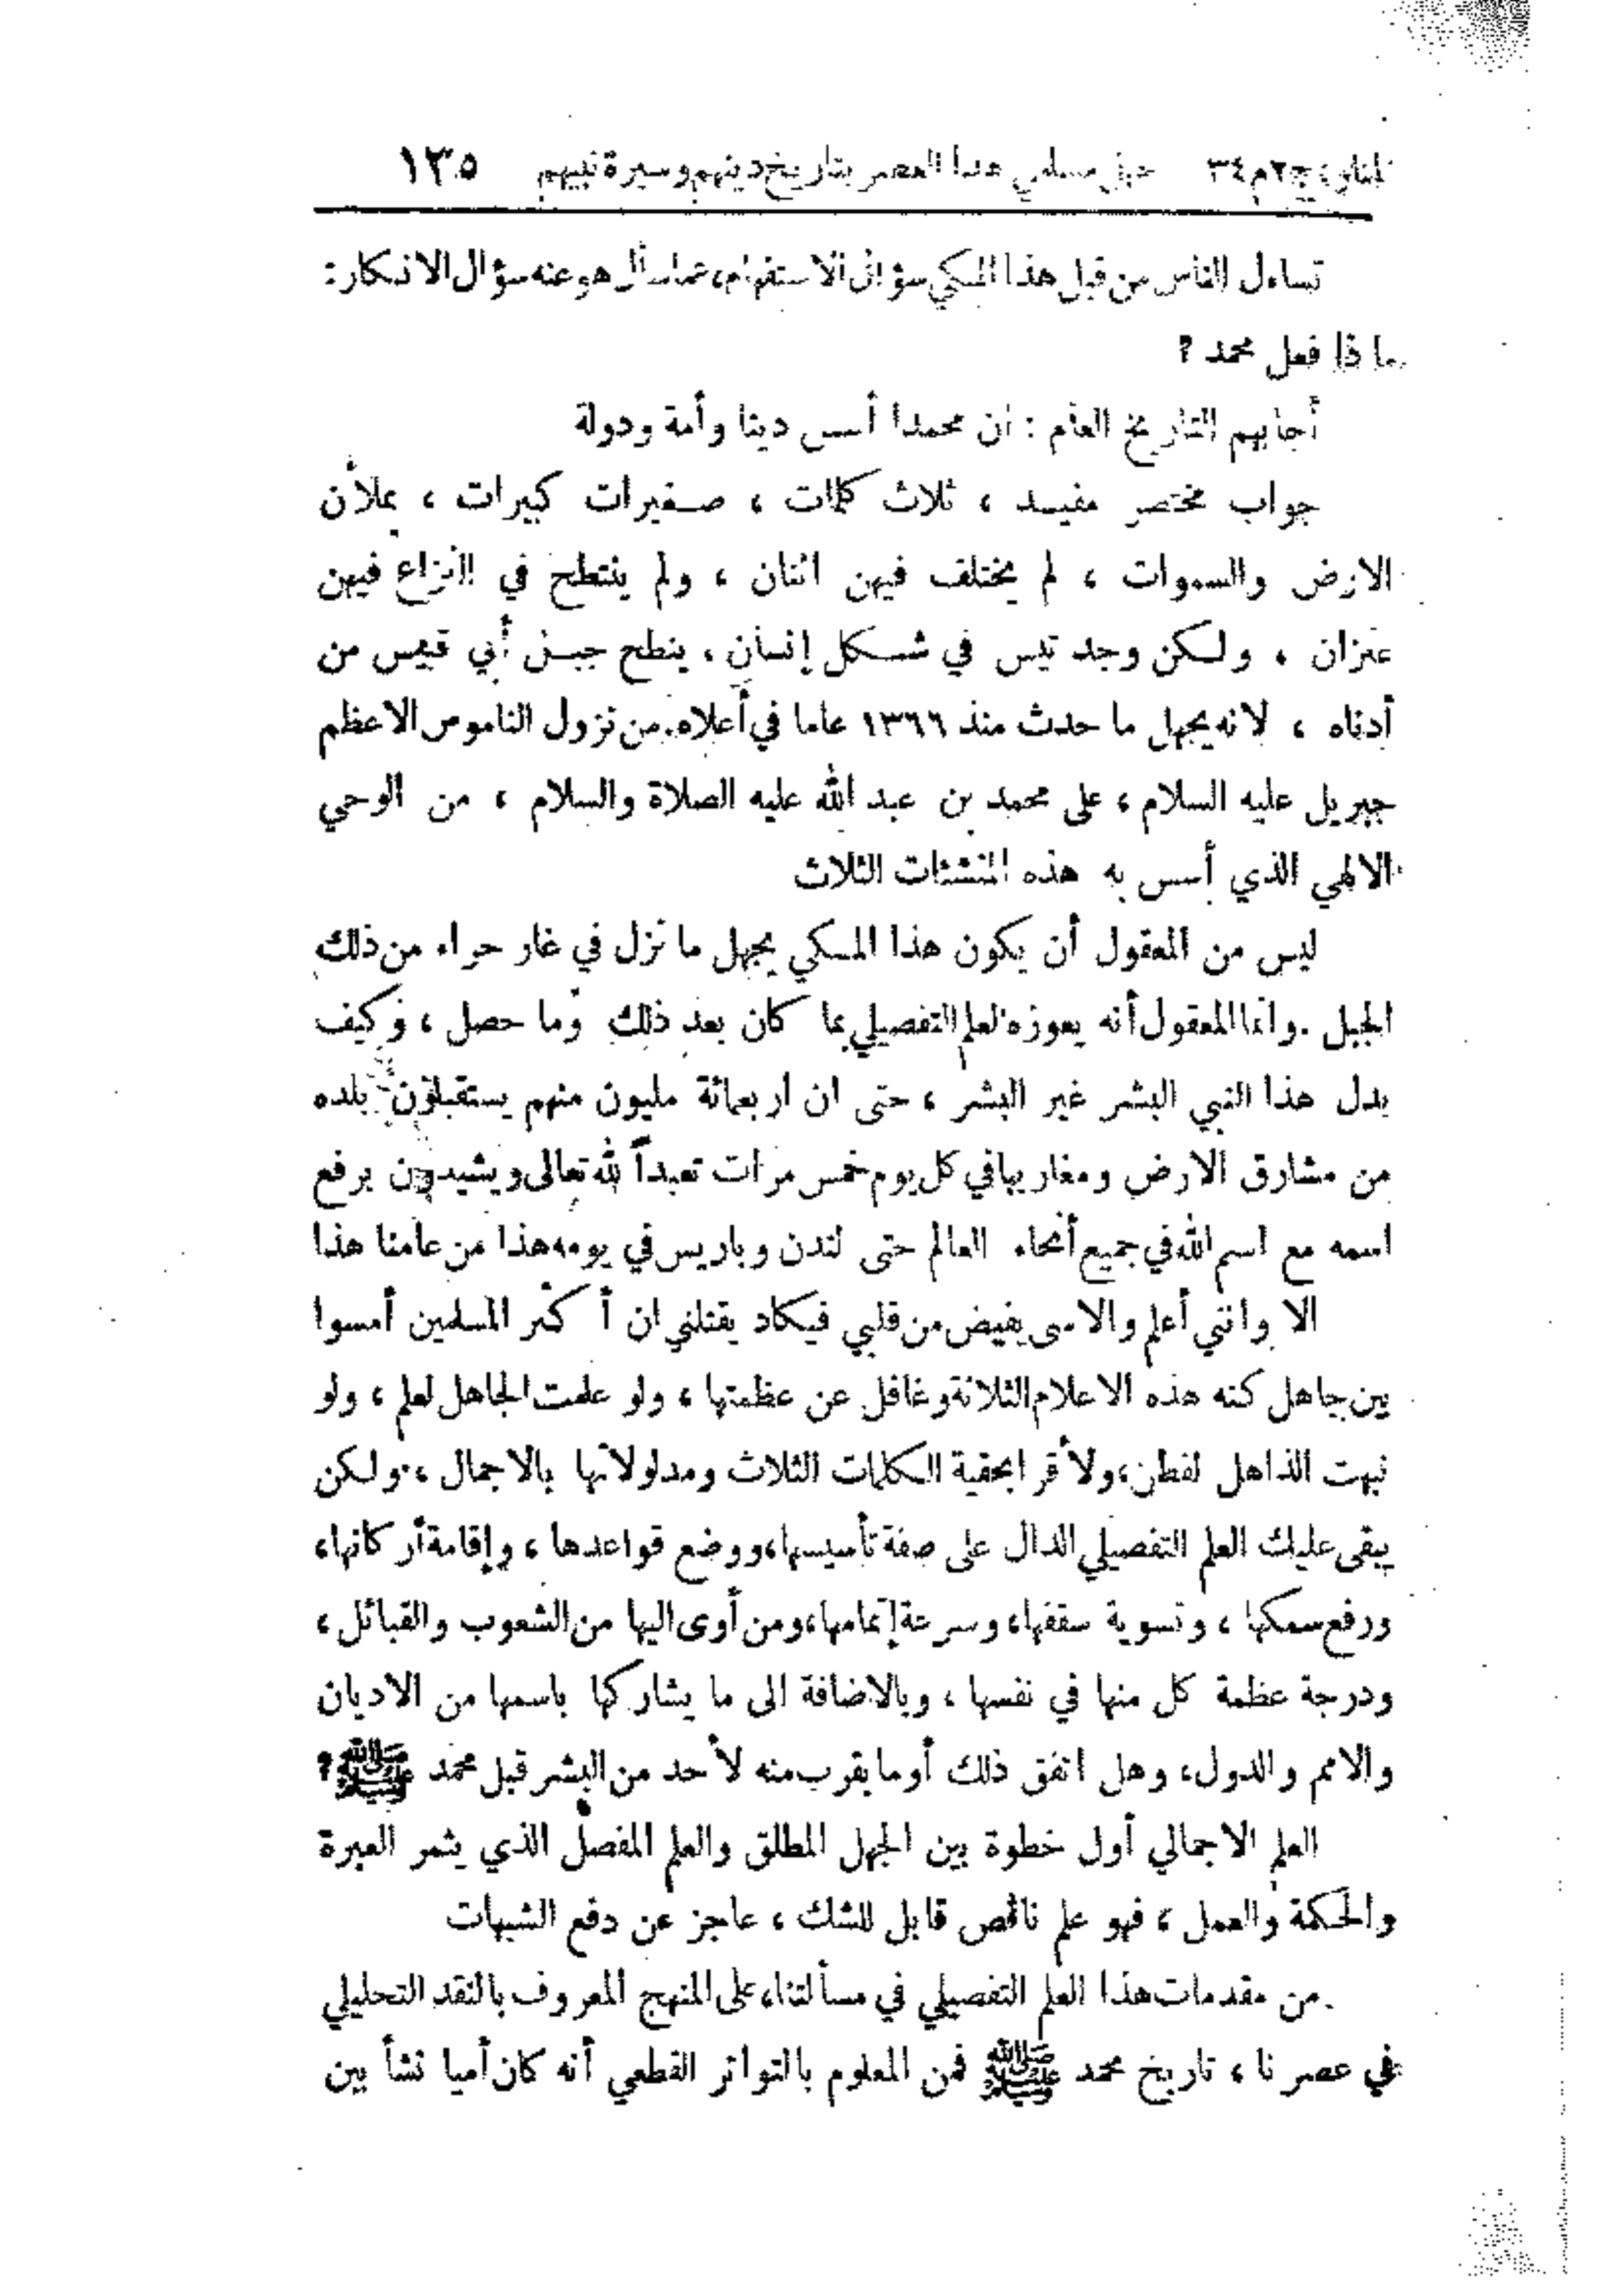 المنار: ج٢م٣٤ جهل مسلمي هذا العصر بتاريخ دينهم وسيرة نبيهم ١٣٥
تساءل الناس من قبل هذا المكي سؤال الاستفهام، عما سأل هو عنه سؤال الانكار:
ماذا فعل محمد ؟
أجابهم التاريخ العام : ان محمدا أسس دينا وأمة ودولة
جواب مختصر مفيد ، ثلاث كلمات ، صغيرات كبيرات ، يملأن
الارض والسموات ، لم يختلف فيهن اثنان ، ولم ينتطح في النزاع فيهن
عنزان ، ولكن وجد تيس في شكل إنسان ، ينطح جبل أبي قبيس من
أدناه ، لانه يجهل ما حدث منذ ١٣٦٦ عاما في أعلاه. من نزول الناموس الاعظم
جبريل عليه السلام ، على محمد بن عبد الله عليه الصلاة والسلام ، من الوحي
الالهي الذي أسس به هذه المنشئات الثلاث
ليس من المعقول أن يكون هذا المكي يجهل ما نزل في غار حراء من ذلك
الجبل . وانما المعقول أنه يعوزه العلم التفصيلي بما كان بعد ذلك وما حصل ، وكيف
بدل هذا النبي البشر غير البشر ، حتى ان اربعمائة مليون منهم يستقبلون بلده
من مشارق الارض ومغاربها في كل يوم خمس مرات تعبداً لله تعالى ويشيدون برفع
اسمه مع اسم الله في جميع أنحاء العالم حتى لندن وباريس في يومه هذا من عامنا هذا
الا وانني أعلم والاسى يفيض من قلبي فيكاد يقتلني ان أكثر المسلمين أمسوا
بين جاهل كنه هذه الاعلام الثلاثة وغافل عن عظمتها ، ولو علمت الجاهل لعلم ، ولو
نبهت الذاهل لفطن، ولأقرا بحقية الكلمات الثلاث ومدلولاتها بالاجمال ، ولكن
يبقى عليك العلم التفصيلي الدال على صفة تأسيسها، ووضع قواعدها ، وإقامة أركانها،
ورفع سمكها ، وتسوية سقفها، وسرعة إتمامها، ومن أوى اليها من الشعوب والقبائل ،
ودرجة عظمة كل منها في نفسها ، وبالاضافة الى ما يشاركها باسمها من الاديان
والامم والدول، وهل اتفق ذلك أو ما يقرب منه لأحد من البشر قبل محمد ﷺ ؟
العلم الاجمالي أول خطوة بين الجهل المطلق والعلم المفصل الذي يثمر العبرة
والحكمة والعمل ، فهو علم ناقص قابل للشك ، عاجز عن دفع الشبهات
من مقدمات هذا العلم التفصيلي في مسألتنا، على المنهج المعروف بالنقد التحليلي
في عصرنا ، تاريخ محمد ﷺ فمن المعلوم بالتواتر القطعي أنه كان أميا نشأ بين